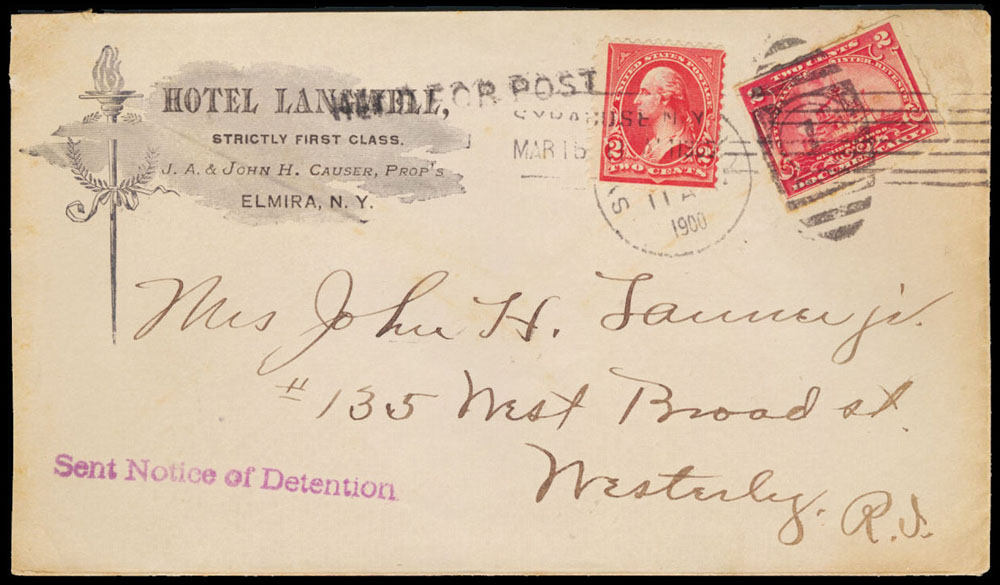 HOTEL
STRICTLY FIRST CLASS.
J. A. & JOHN H. CAUSER, PROP'S
ELMIRA, N. Y.
FOR POST
SYRACUSE N.Y.
MAR 15
11 A
1900
UNITED STATES POSTAGE
2 2
TWO CENTS
TWO CENTS
2
DOCUMENTARY
Mrs John H. Tanner jr.
# 135 West Broad st.
Westerly.
R.I.
Sent Notice of Detention